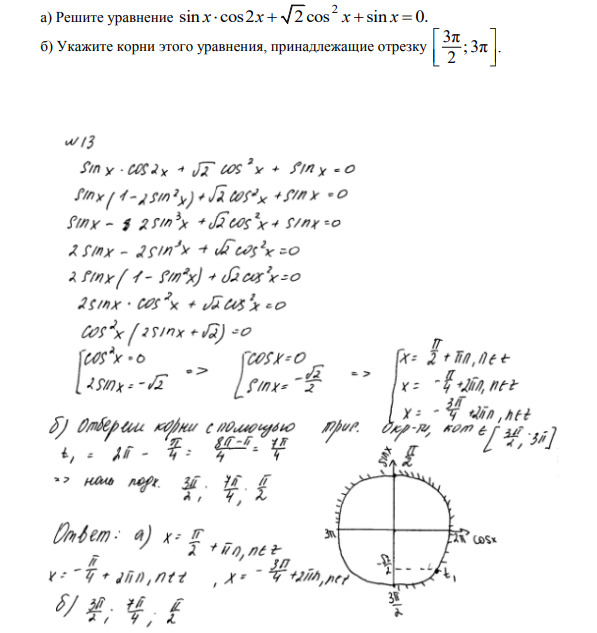 а) Решите уравнение sin x · cos 2x + √2 cos² x + sin x = 0.
б) Укажите корни этого уравнения, принадлежащие отрезку [3π/2; 3π].
№13
sin x · cos 2x + √2 cos²x + sin x = 0
sin x (1 - 2 sin²x) + √2 cos²x + sin x = 0
sin x - 2 sin³x + √2 cos²x + sin x = 0
2 sin x - 2 sin³x + √2 cos²x = 0
2 sin x (1 - sin²x) + √2 cos²x = 0
2 sin x · cos²x + √2 cos²x = 0
cos²x (2 sin x + √2) = 0
[cos²x = 0 => [cos x = 0 => [x = π/2 + πn, n ∈ z
2 sin x = -√2 sin x = -√2/2 x = -π/4 + 2πn, n ∈ z
x = -3π/4 + 2πn, n ∈ z
б) Отберем корни с помощью триг. окр-ти, кот ∈ [3π/2; 3π]
t₁ = 2π - π/4 = 8π-π/4 = 7π/4
=> нам подх. 3π/2; 7π/4; π/2
sin x
π/2
3π
2π
cos x
-√2/2
t₁
3π/2
Ответ: а) x = π/2 + πn, n ∈ z
x = -π/4 + 2πn, n ∈ z, x = -3π/4 + 2πn, n ∈ z
б) 3π/2; 7π/4; π/2